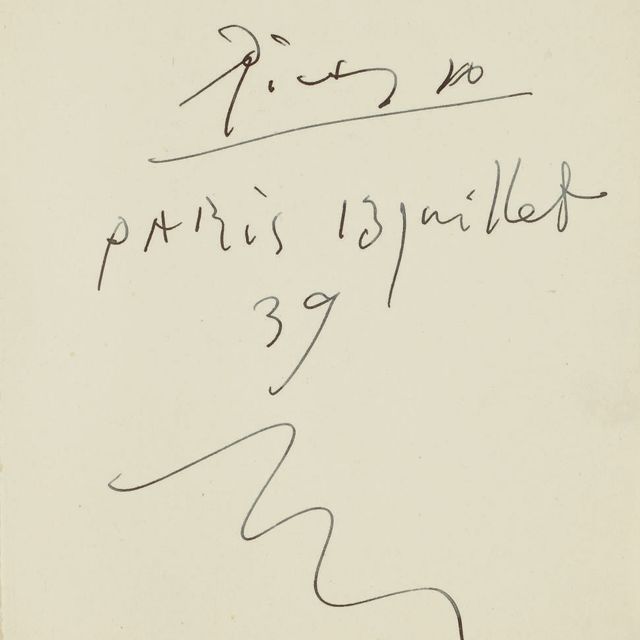 Picasso
PARis 13 juillet
39